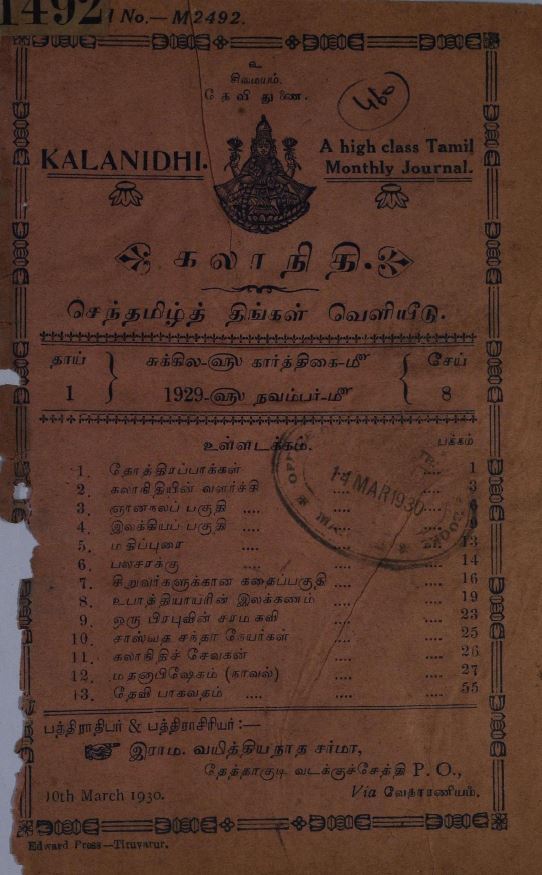 1492 l No.— M2492.
உ
சிவமயம்.
தேவி துணை.
460
KALANIDHI.
A high class Tamil
Monthly Journal.
கலாநிதி.
செந்தமிழ்த் திங்கள் வெளியீடு.
தாய் } சுக்கில-௵ கார்த்திகை-௴ { சேய்
1 } 1929-௵ நவம்பர்-௴ { 8
உள்ளடக்கம். பக்கம்
1. தோத்திரப்பாக்கள் .... .... 1
2. கலாநிதியின் வளர்ச்சி .... .... 3
3. ஞானநலப் பகுதி .... ....
4. இலக்கியப் பகுதி .... .... 9
5. மதிப்புரை .... .... 13
6. பலசரக்கு .... .... 14
7. சிறுவர்களுக்கான கதைப்பகுதி .... .... 16
8. உபாத்தியாயரின் இலக்கணம் .... .... 19
9. ஒரு பிரபுவின் சரம கவி .... .... 23
10. சாஸ்வத சந்தா நேயர்கள் .... .... 25
11. கலாநிதிச் சேவகன் .... .... 26
12. மதனாபிஷேகம் (நாவல்) .... .... 27
13. தேவி பாகவதம் .... .... 55
14 MAR 1930
பத்திராதிபர் & பத்திராசிரியர்:—
இராம. வயித்தியநாத சர்மா,
தேத்தாகுடி வடக்குச்சேத்தி P. O.,
10th March 1930. Via வேதாரணியம்.
Edward Press—Tiruvarur.